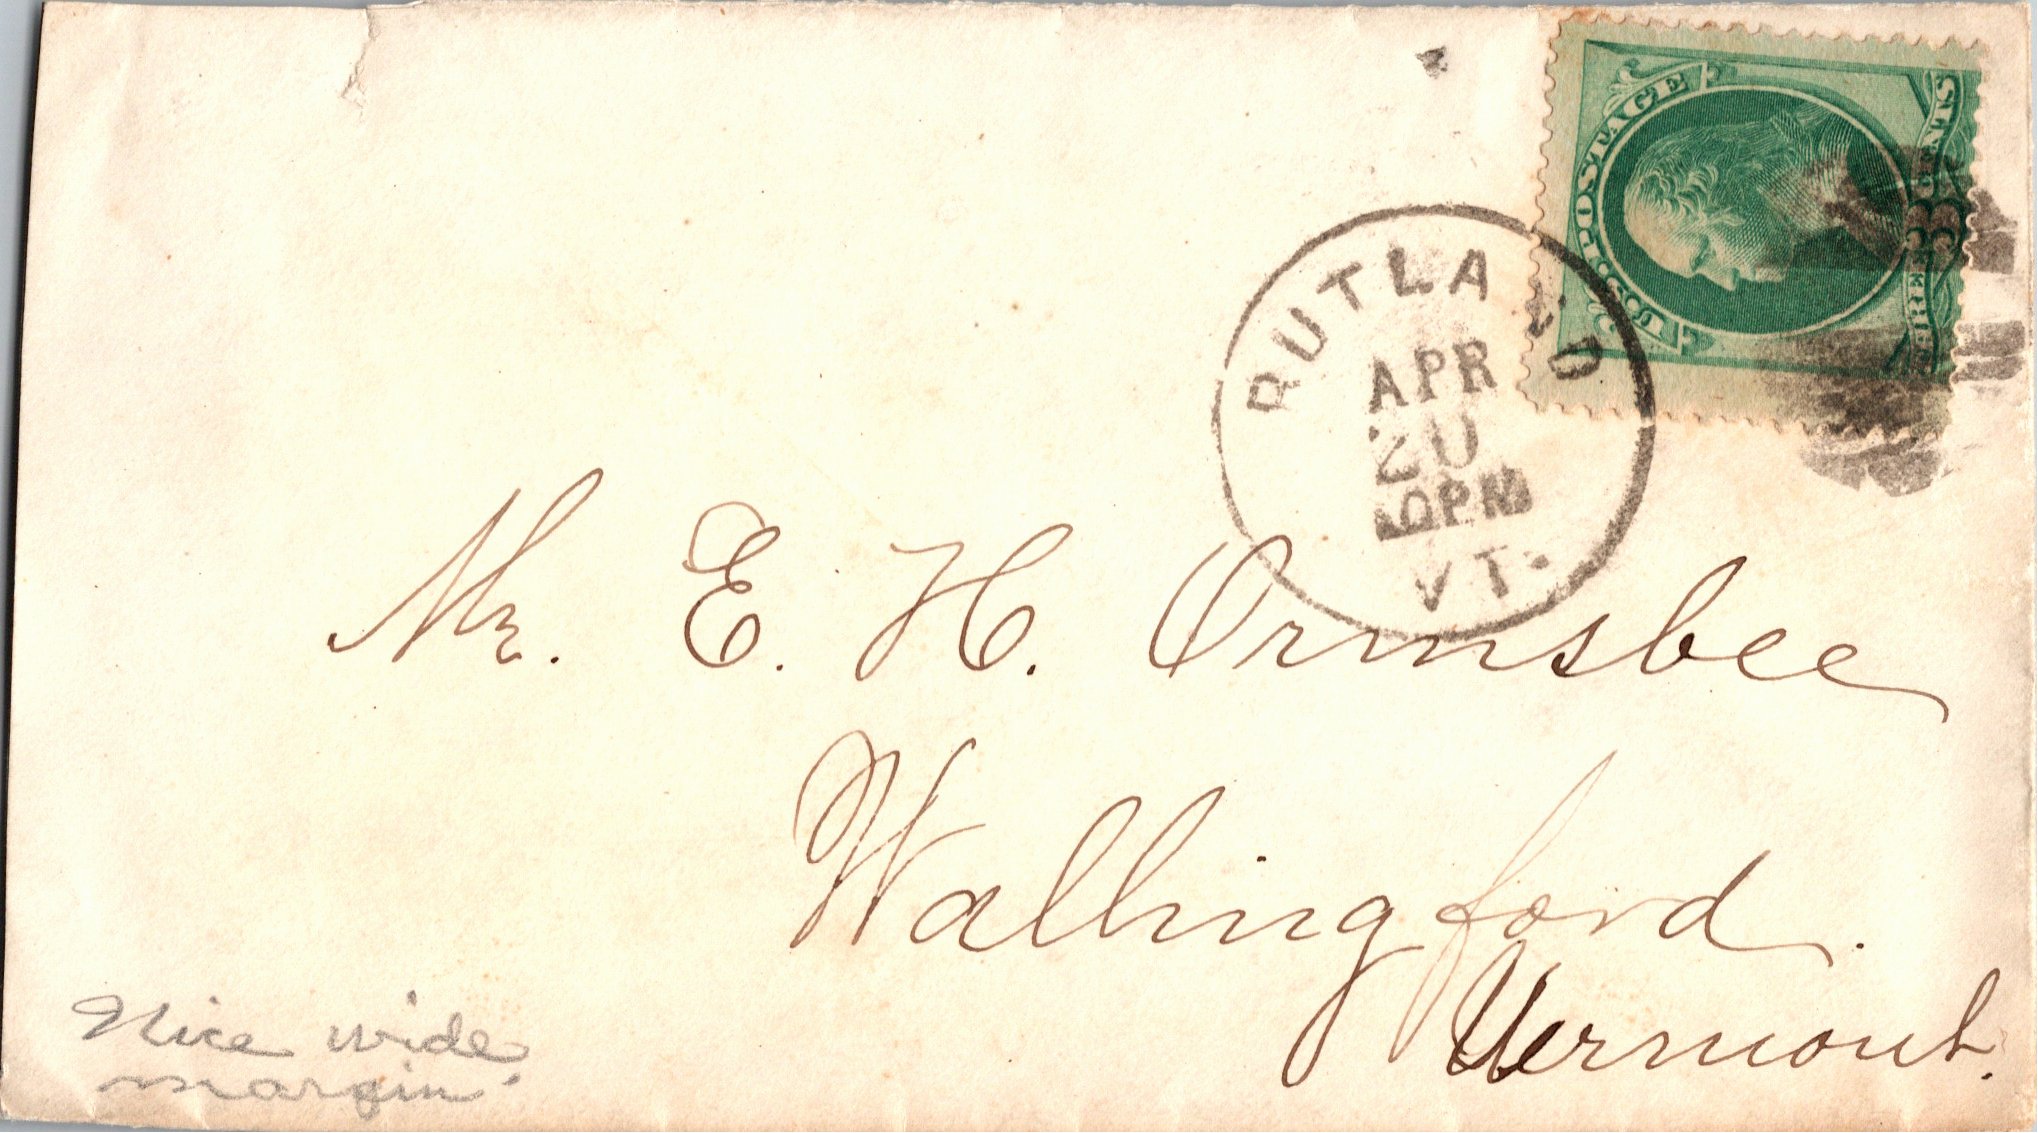 U.S. POSTAGE
THREE 3 CENTS
RUTLAND
APR
20
10PM
VT.
Mr. E. H. Ormsbee
Wallingford.
Vermont.
Nice wide
margin.